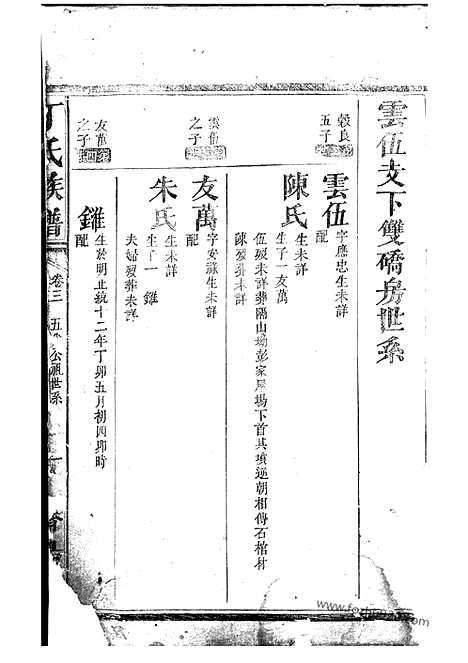 雲伍支下雙磜房世系
穀良
五子
雲伍字應忠生未詳
配
陳氏生未詳
生子一友萬
伍歿未詳葬隔山坳彭家屋場下首其墳逆朝相傳石棺材
陳歿葬未詳
雲伍
之子
友萬字安祿生未詳
配
朱氏生未詳
生子一 錐
夫婦歿葬未詳
友萬
之子
錐生於明正統十二年丁卯五月初四卯時
配
丁氏族譜 卷三 五 公祖世系